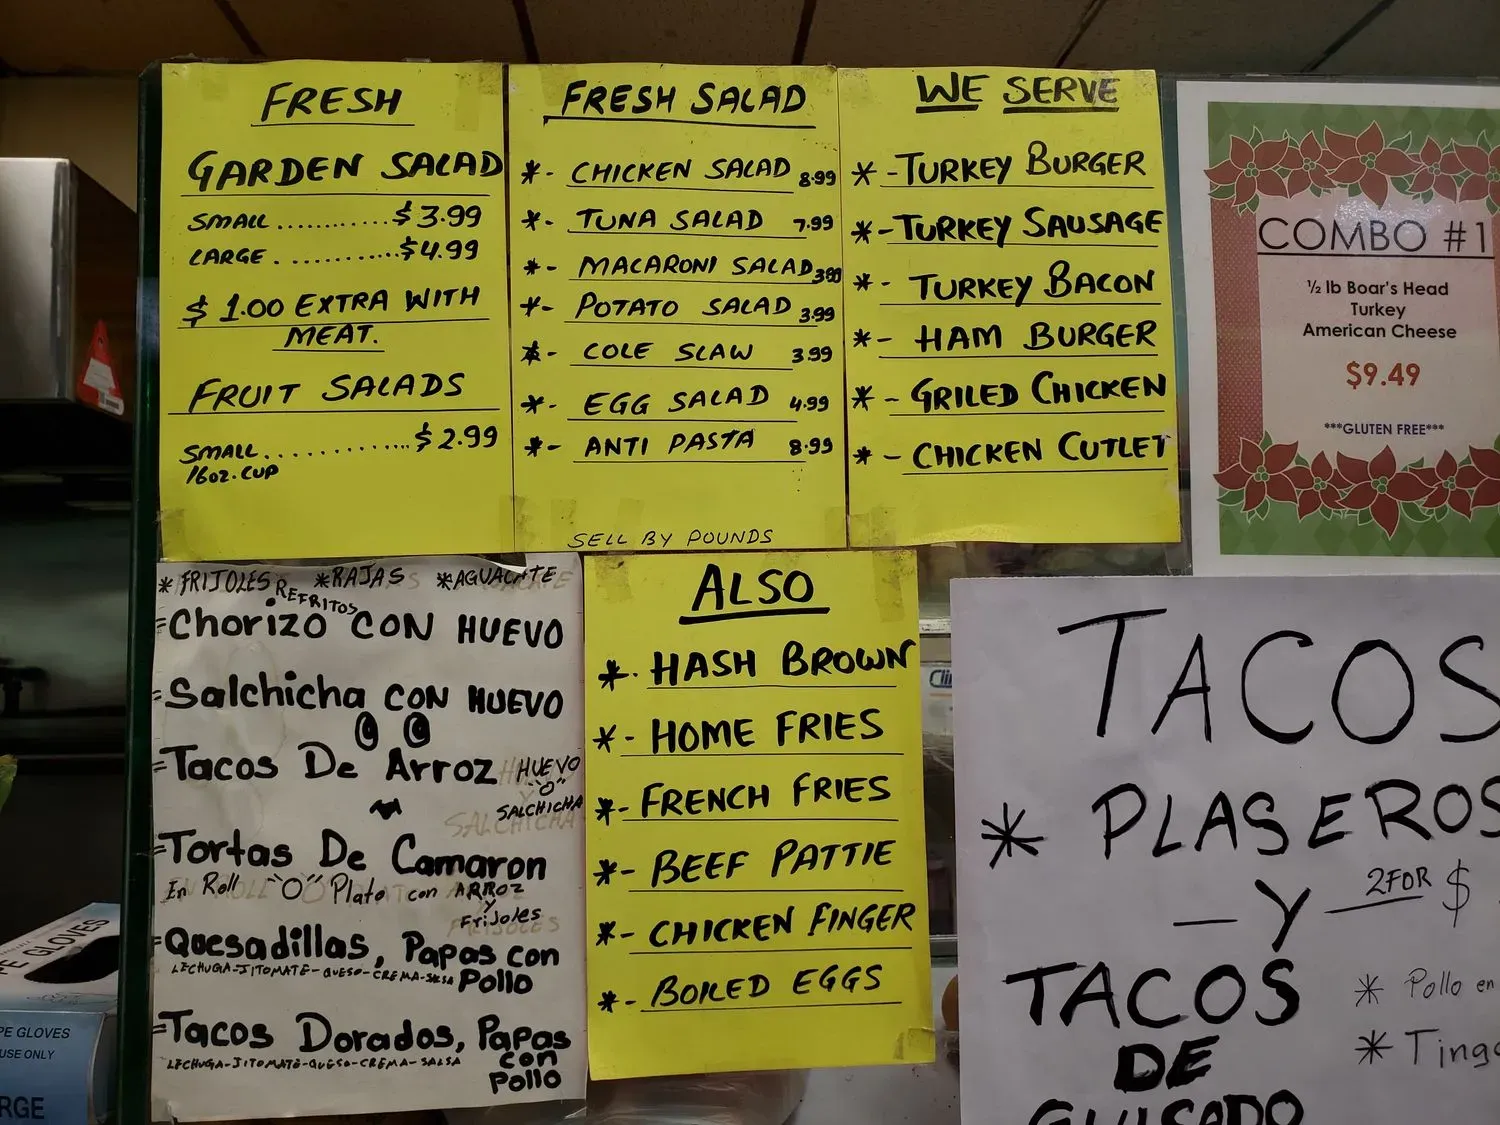 FRESH
GARDEN SALAD
SMALL ............ $3.99
LARGE ............ $4.99
$1.00 EXTRA WITH
MEAT.
FRUIT SALADS
SMALL ............ $2.99
16oz. CUP
FRESH SALAD
*- CHICKEN SALAD 8.99
*- TUNA SALAD 7.99
*- MACARONI SALAD 3.99
*- POTATO SALAD 3.99
*- COLE SLAW 3.99
*- EGG SALAD 4.99
*- ANTI PASTA 8.99
SELL BY POUNDS
WE SERVE
*- TURKEY BURGER
*- TURKEY SAUSAGE
*- TURKEY BACON
*- HAM BURGER
*- GRILED CHICKEN
*- CHICKEN CUTLET
COMBO #1
½ lb Boar's Head
Turkey
American Cheese
$9.49
***GLUTEN FREE***
*FRIJOLES REFRITOS *RAJAS *AGUACATE
Chorizo CON HUEVO
Salchicha CON HUEVO
Tacos De Arroz HUEVO
"O"
SALCHICHA
Tortas De Camaron
En Roll "O" Plato con ARROZ
Y
Frijoles
Quesadillas, Papas con
LECHUGA-JITOMATE-QUESO-CREMA-SALSA Pollo
Tacos Dorados, Papas
LECHUGA-JITOMATE-QUESO-CREMA-SALSA con
Pollo
ALSO
*- HASH BROWN
*- HOME FRIES
*- FRENCH FRIES
*- BEEF PATTIE
*- CHICKEN FINGER
*- BOILED EGGS
TACOS
* PLASEROS
2 FOR $
—Y
TACOS
* Pollo en
DE
* Ting
GUISADO
PE GLOVES
PE GLOVES
USE ONLY
RGE